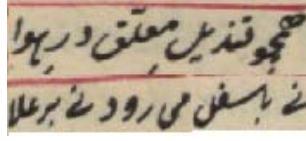 همچو قندیل معلق در هوا
نے باسفل می رود نے بر علا